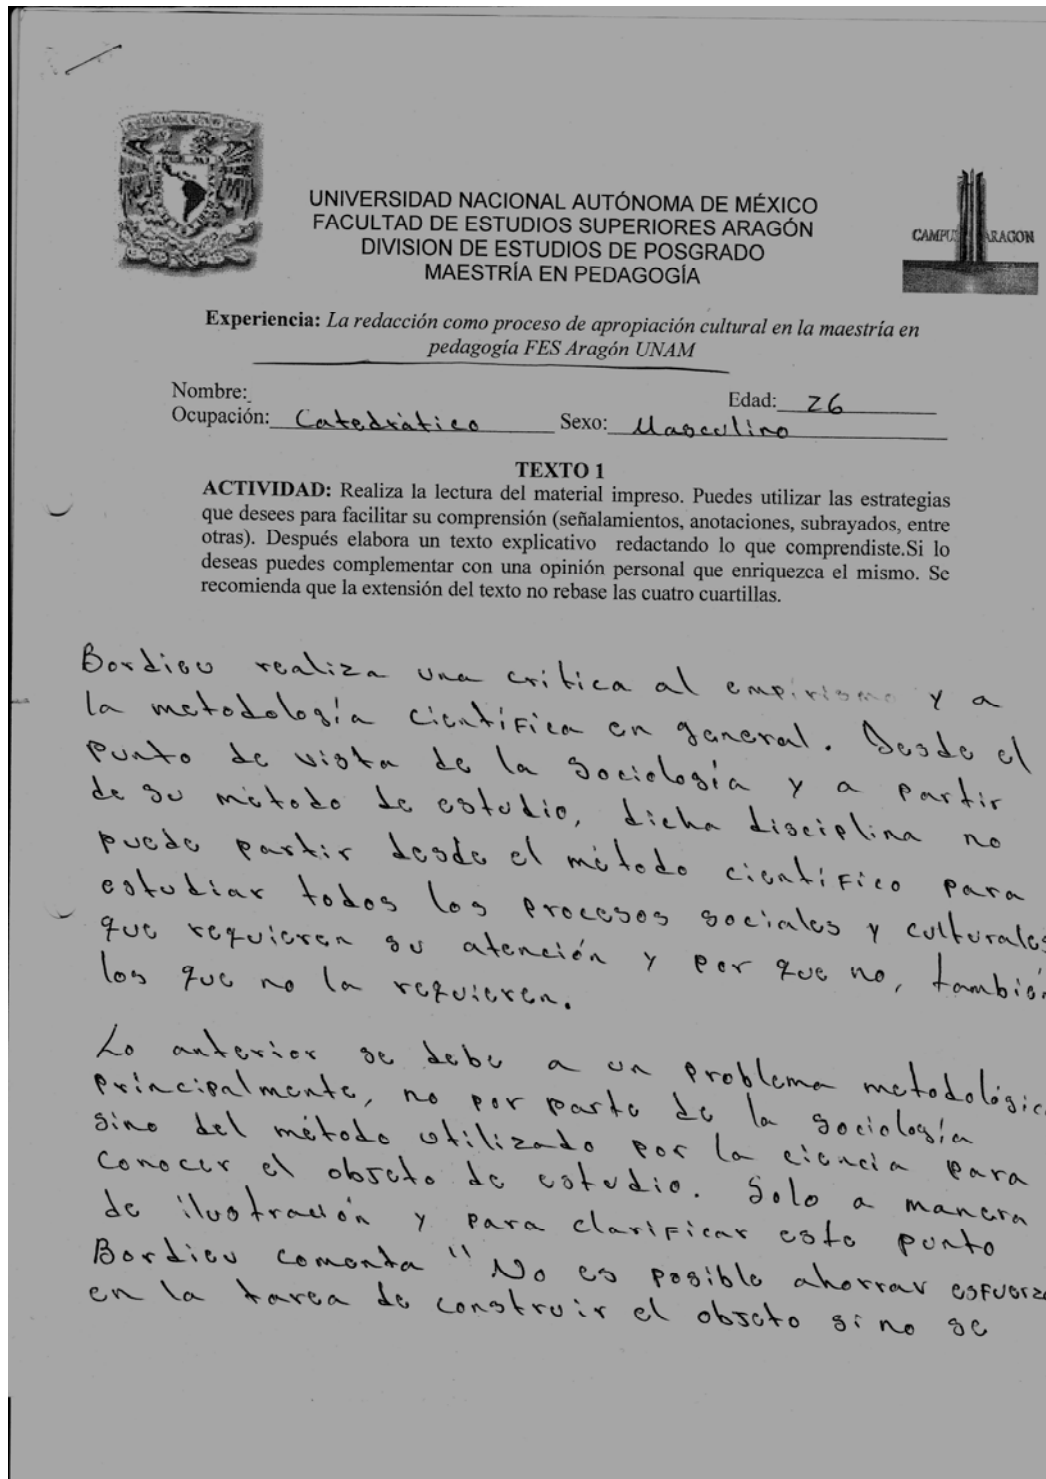 UNIVERSIDAD NACIONAL AUTÓNOMA DE MÉXICO
FACULTAD DE ESTUDIOS SUPERIORES ARAGÓN
DIVISION DE ESTUDIOS DE POSGRADO
MAESTRÍA EN PEDAGOGÍA
CAMPUS ARAGON
Experiencia: La redacción como proceso de apropiación cultural en la maestría en
pedagogía FES Aragón UNAM
Nombre:
Edad: 26
Ocupación: Catedrático Sexo: Masculino
TEXTO 1
ACTIVIDAD: Realiza la lectura del material impreso. Puedes utilizar las estrategias
que desees para facilitar su comprensión (señalamientos, anotaciones, subrayados, entre
otras). Después elabora un texto explicativo redactando lo que comprendiste.Si lo
deseas puedes complementar con una opinión personal que enriquezca el mismo. Se
recomienda que la extensión del texto no rebase las cuatro cuartillas.
Bordieu realiza una crítica al empirismo y a
la metodología científica en general. Desde el
punto de vista de la sociología y a partir
de su método de estudio, dicha disciplina no
puede partir desde el método científico para
estudiar todos los procesos sociales y culturales
que requieren su atención y por que no, también
los que no la requieren.
Lo anterior se debe a un problema metodológic
principalmente, no por parte de la sociología
sino del método utilizado por la ciencia para
conocer el objeto de estudio. Solo a manera
de ilustración y para clarificar este punto
Bordieu comenta "No es posible ahorrar esfuerzo
en la tarea de construir el objeto si no se